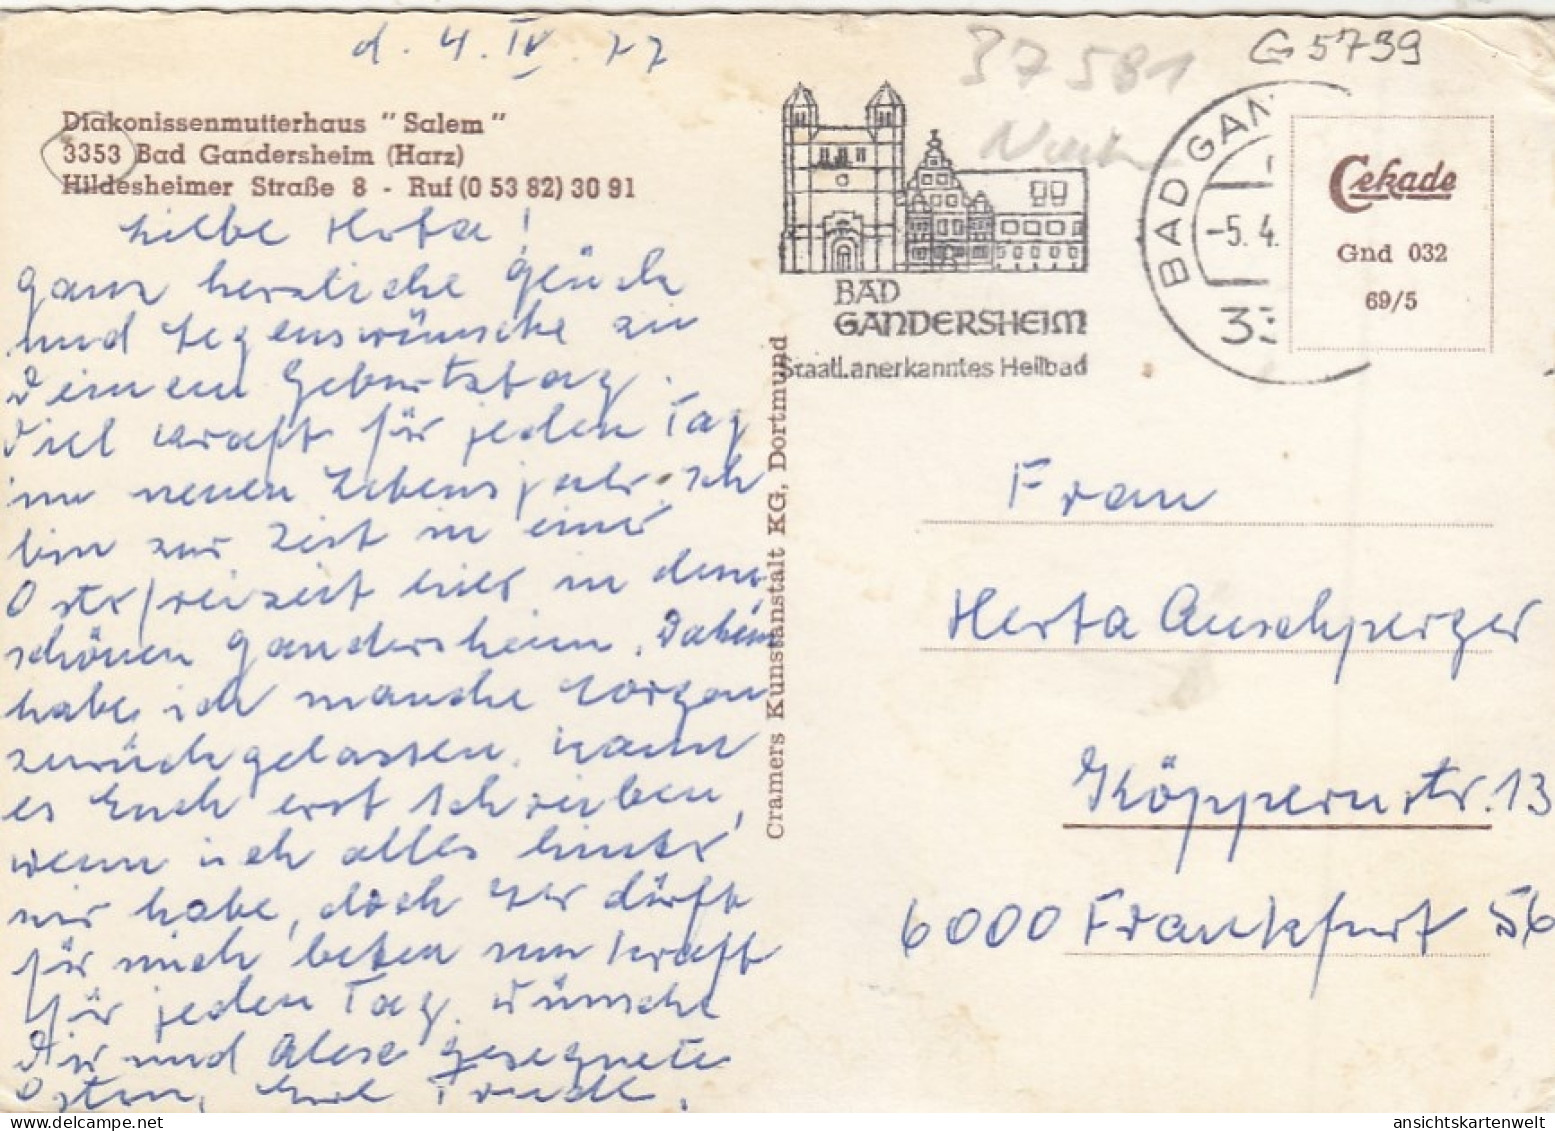 d. 4. IV. 77
37581
G 5739
Diakonissenmutterhaus "Salem"
3353 Bad Gandersheim (Harz)
Hildesheimer Straße 8 - Ruf (0 53 82) 30 91
Liebe Herta!
ganz herzliche Glück
und Segenswünsche zu
Deinem Geburtstag.
Viel Kraft für jeden Tag
im neuen Lebensjahr. Ich
bin zur Zeit in einer
Osterfreizeit hier in dem
schönen Gandersheim. Daheim
habe ich manche Sorgen
zurückgelassen. Kann
es Euch erst schreiben,
wenn ich alles hinter
mir habe, doch Ihr dürft
für mich beten um Kraft
für jeden Tag. Wünsche
Dir und Alese gesegnete
Ostern, Eure Friedl.
Cramers Kunstanstalt KG, Dortmund
BAD
GANDERSHEIM
Staatl. anerkanntes Heilbad
BAD GAN
-5. 4.
33
Cekade
Gnd 032
69/5
Frau
Herta Auschperger
Köppernstr. 13
6000 Frankfurt 56
ansichtskartenwelt